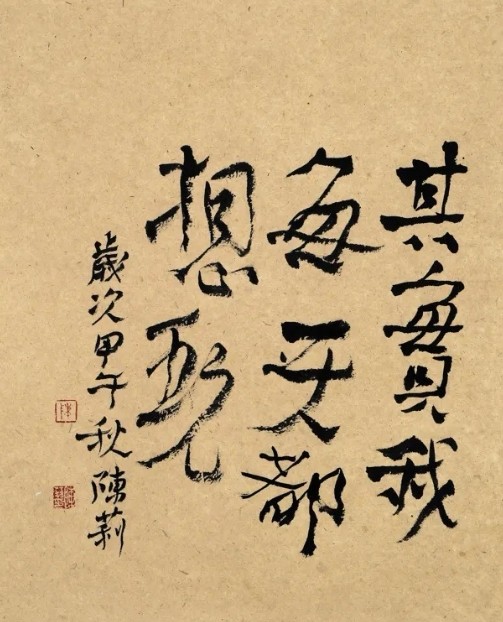 其實我
每天都
想
歲次甲午秋陳莉